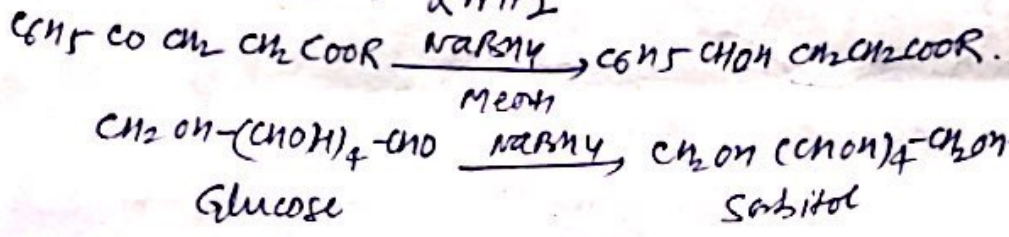 C6H5 CO CH2 CH2 COOR NaBH4 → C6H5 CHOH CH2CH2COOR.
MeOH
CH2 OH-(CHOH)4-CHO NaBH4 → CH2 OH (CHOH)4-CH2OH
Glucose Sorbitol